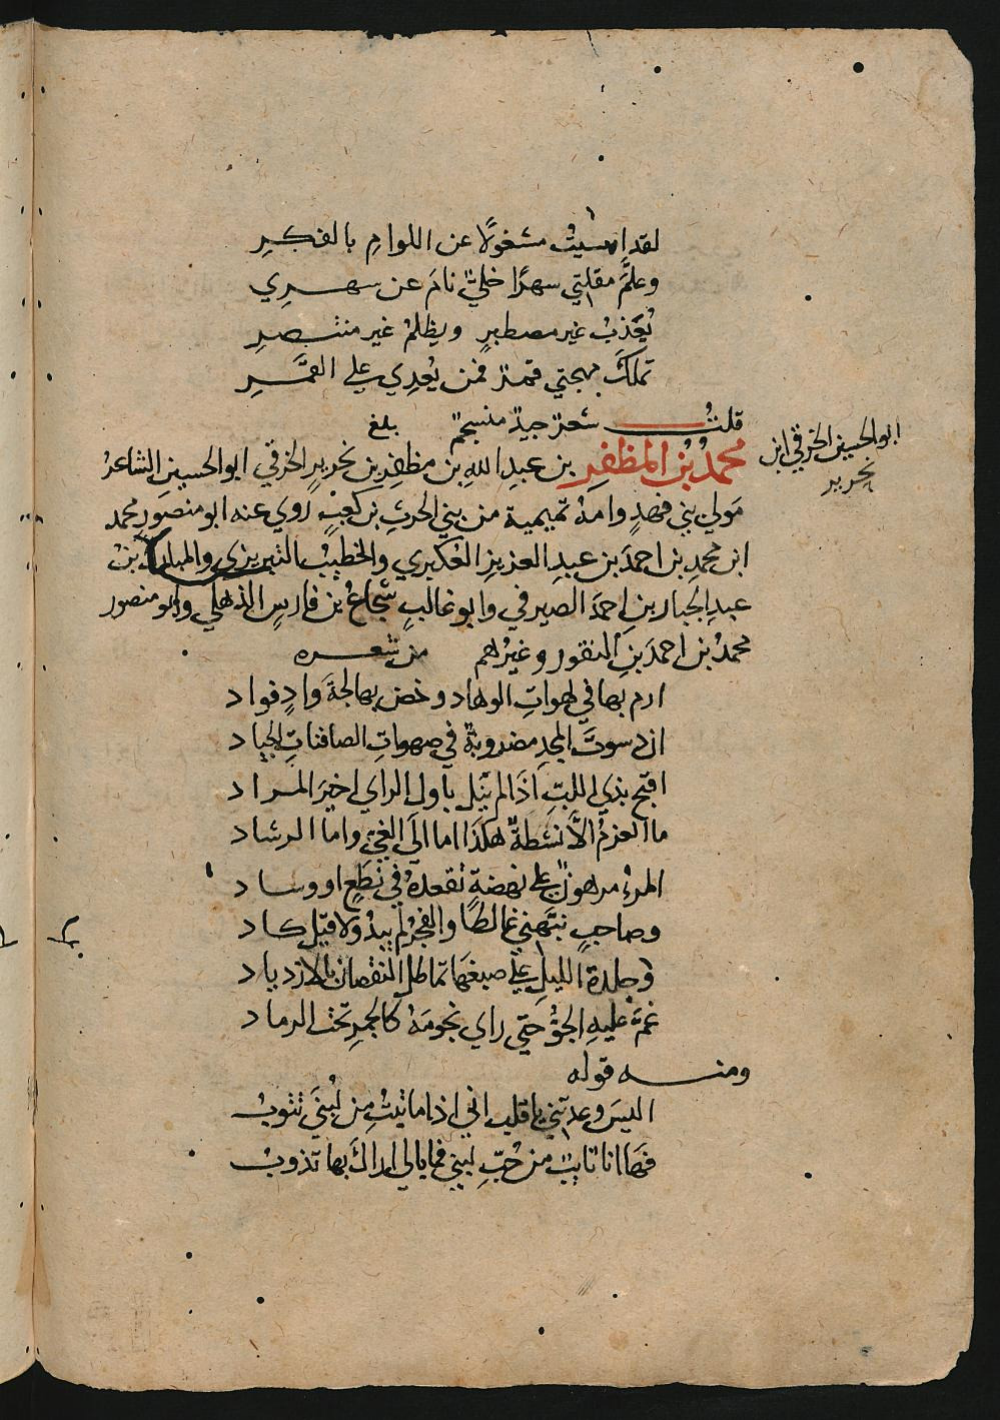 لقد امسيتُ مشغولًا عن اللوامِ بالفكرِ
وعلمَّ مقلتي سهرًا خليٌّ نامَ عن سهري
يُعَذبُ غير مصطبرٍ ويظلمُ غير منتصرِ
تملكَ مهجتي قمرٌ فمن يُعدِي علي القمَرِ
قلتُ شعرٌ جيدٌ منسجمٌ بلغ
محمدُ بنُ المظفرِ بن عبدِ اللهِ بن مظفرِ بن نحريرٍ الخرقي ابو الحسينِ الشاعرُ
ابو الحسين الخرقي ابن
نحرير
مولي بني فهدٍ وامهُ تميمية من بني الحرثِ بن كعبٍ روي عنه ابو منصورٍ محمد
ابن محمدِ بن احمدَ بن عبدِ العزيزِ العُكبري والخطيبُ التبريزي والمبارك بنُ
عبدِ الجبارِ بنِ احمدَ الصيرفي وابو غالبٍ شجاعُ بن فارسٍ الذهلي وابو منصور
محمدُ بن احمدَ بنِ النقور وغيرُهم من شعره
ارم بها في لهواتِ الوهاد وخض بها لجةَ وادٍ فواد
ان دسوتَ المجدِ مضروبةٌ في صهواتِ الصافناتِ الجياد
اقبح بذي اللبّ اذا لم يَنَل باول الراي اخيرَ المراد
ما العزمُ الاَّ نشطةٌ هكذا اما الَي الغيّ واما الرشاد
المرءُ مرهونٌ علي نهضةٍ تقعدهُ في نطعٍ او وساد
وصاحبٍ نبَّهني غالطًا والفجرُ لم يبدُ ولا قيل كاد
وجلدة الليلِ علي صبغهَا تماطل النقصان بالازدياد
غمَّ عليهِ الجوُّ حتي راي نجومَهُ كالجمرِ تحت الرماد
ومنه قوله
اليسَ وعدتني يا قلب اني اذا ما تبتُ من لُبنَي تتوبُ
فهَا انا تايبٌ من حُبّ لبني فما لي اراكَ بها تذوبُ